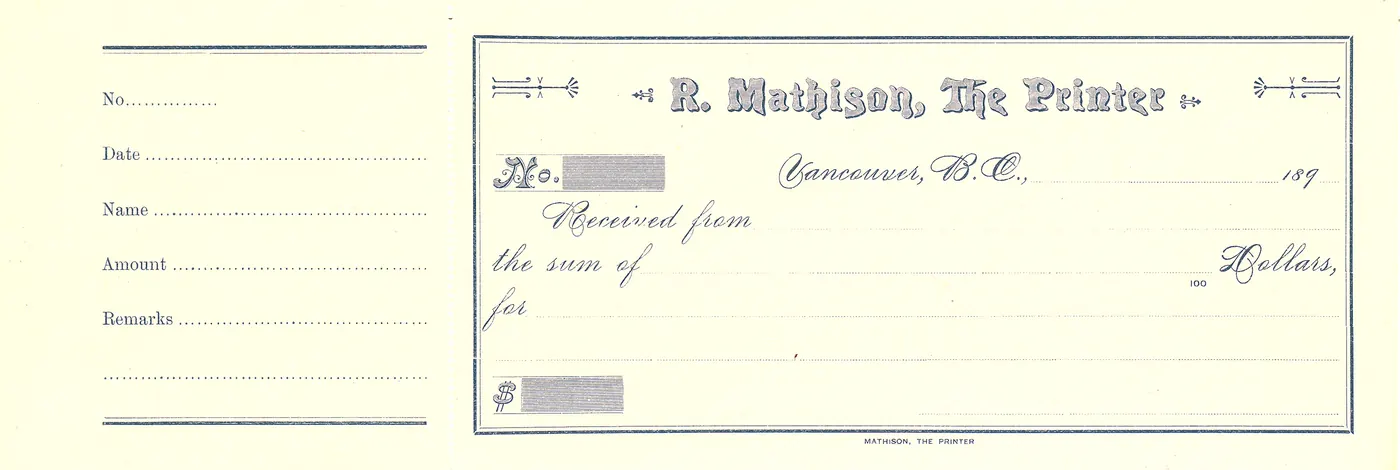 No..............
Date
Name
Amount
Remarks
R. Mathison, The Printer
No.
Vancouver, B.C., 189
Received from
the sum of Dollars,
100
for
$
MATHISON, THE PRINTER